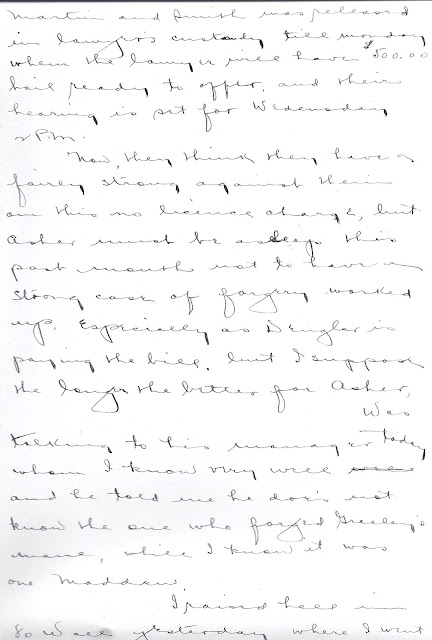 Martin and Smith was released
in lawyers custody till monday
when the lawyer will have $500.00
bail ready to offer, and their
hearing is set for Wedensday
2 P.M.
Now, they think they have a
fairly strong against them
on this no license charge, but
Asher must be asleep this
past month not to have a
strong case of forgery worked
up. Especially as Dengler is
paying the bill, but I suppose
the longer the better for Asher,
Was
talking to his manager today
whom I know very well
and he told me he does not
know the one who forged Greeley's
name, while I know it was
one Madden.
I raised hell in
80 Wall yesterday where I went